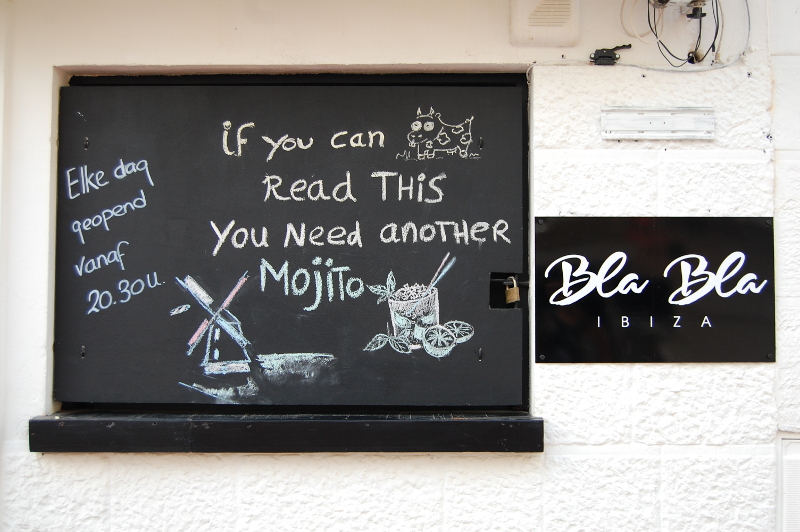 Elke dag
geopend
vanaf
20.30u.
if you can
Read THiS
You Need anotHER
MojiTo
Bla Bla
IBIZA